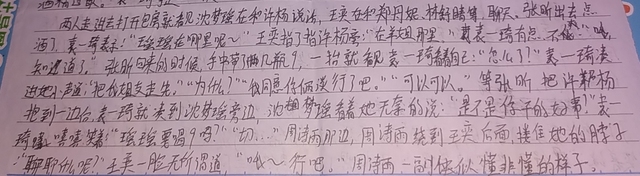 两人走进去打开包房就看见沈梦瑶在和许杨说话,王奕在和郑丹妮、聊天、张昕出去点
酒了,袁一琦表示:"瑶瑶在哪里呢~"王奕指了指许杨旁"在半那里,"袁一琦有点不"哦,
知道了。"张昕回来的时候手中拿俩几瓶了,一抬就看见袁一琦看着自己:"怎么了?"袁一琦凑
过她小声道:"把你朋友支走。""为什么?""我同意你俩谈行了吧。""可以可以。"等张昕把许杨
抱到一边台,袁一琦就凑到沈梦瑶旁边,沈梦瑶看着她无奈的说:"是不是你干的好事!"袁一
琦嘻嘻笑着:"瑶瑶要喝吗?""切…"周诗雨那边,周诗雨绕到王奕后面,搂住她的脖子
:"聊聊什么呢?"王奕一脸无所谓道,"哦~行吧。"周诗雨一副似懂非懂的样子。